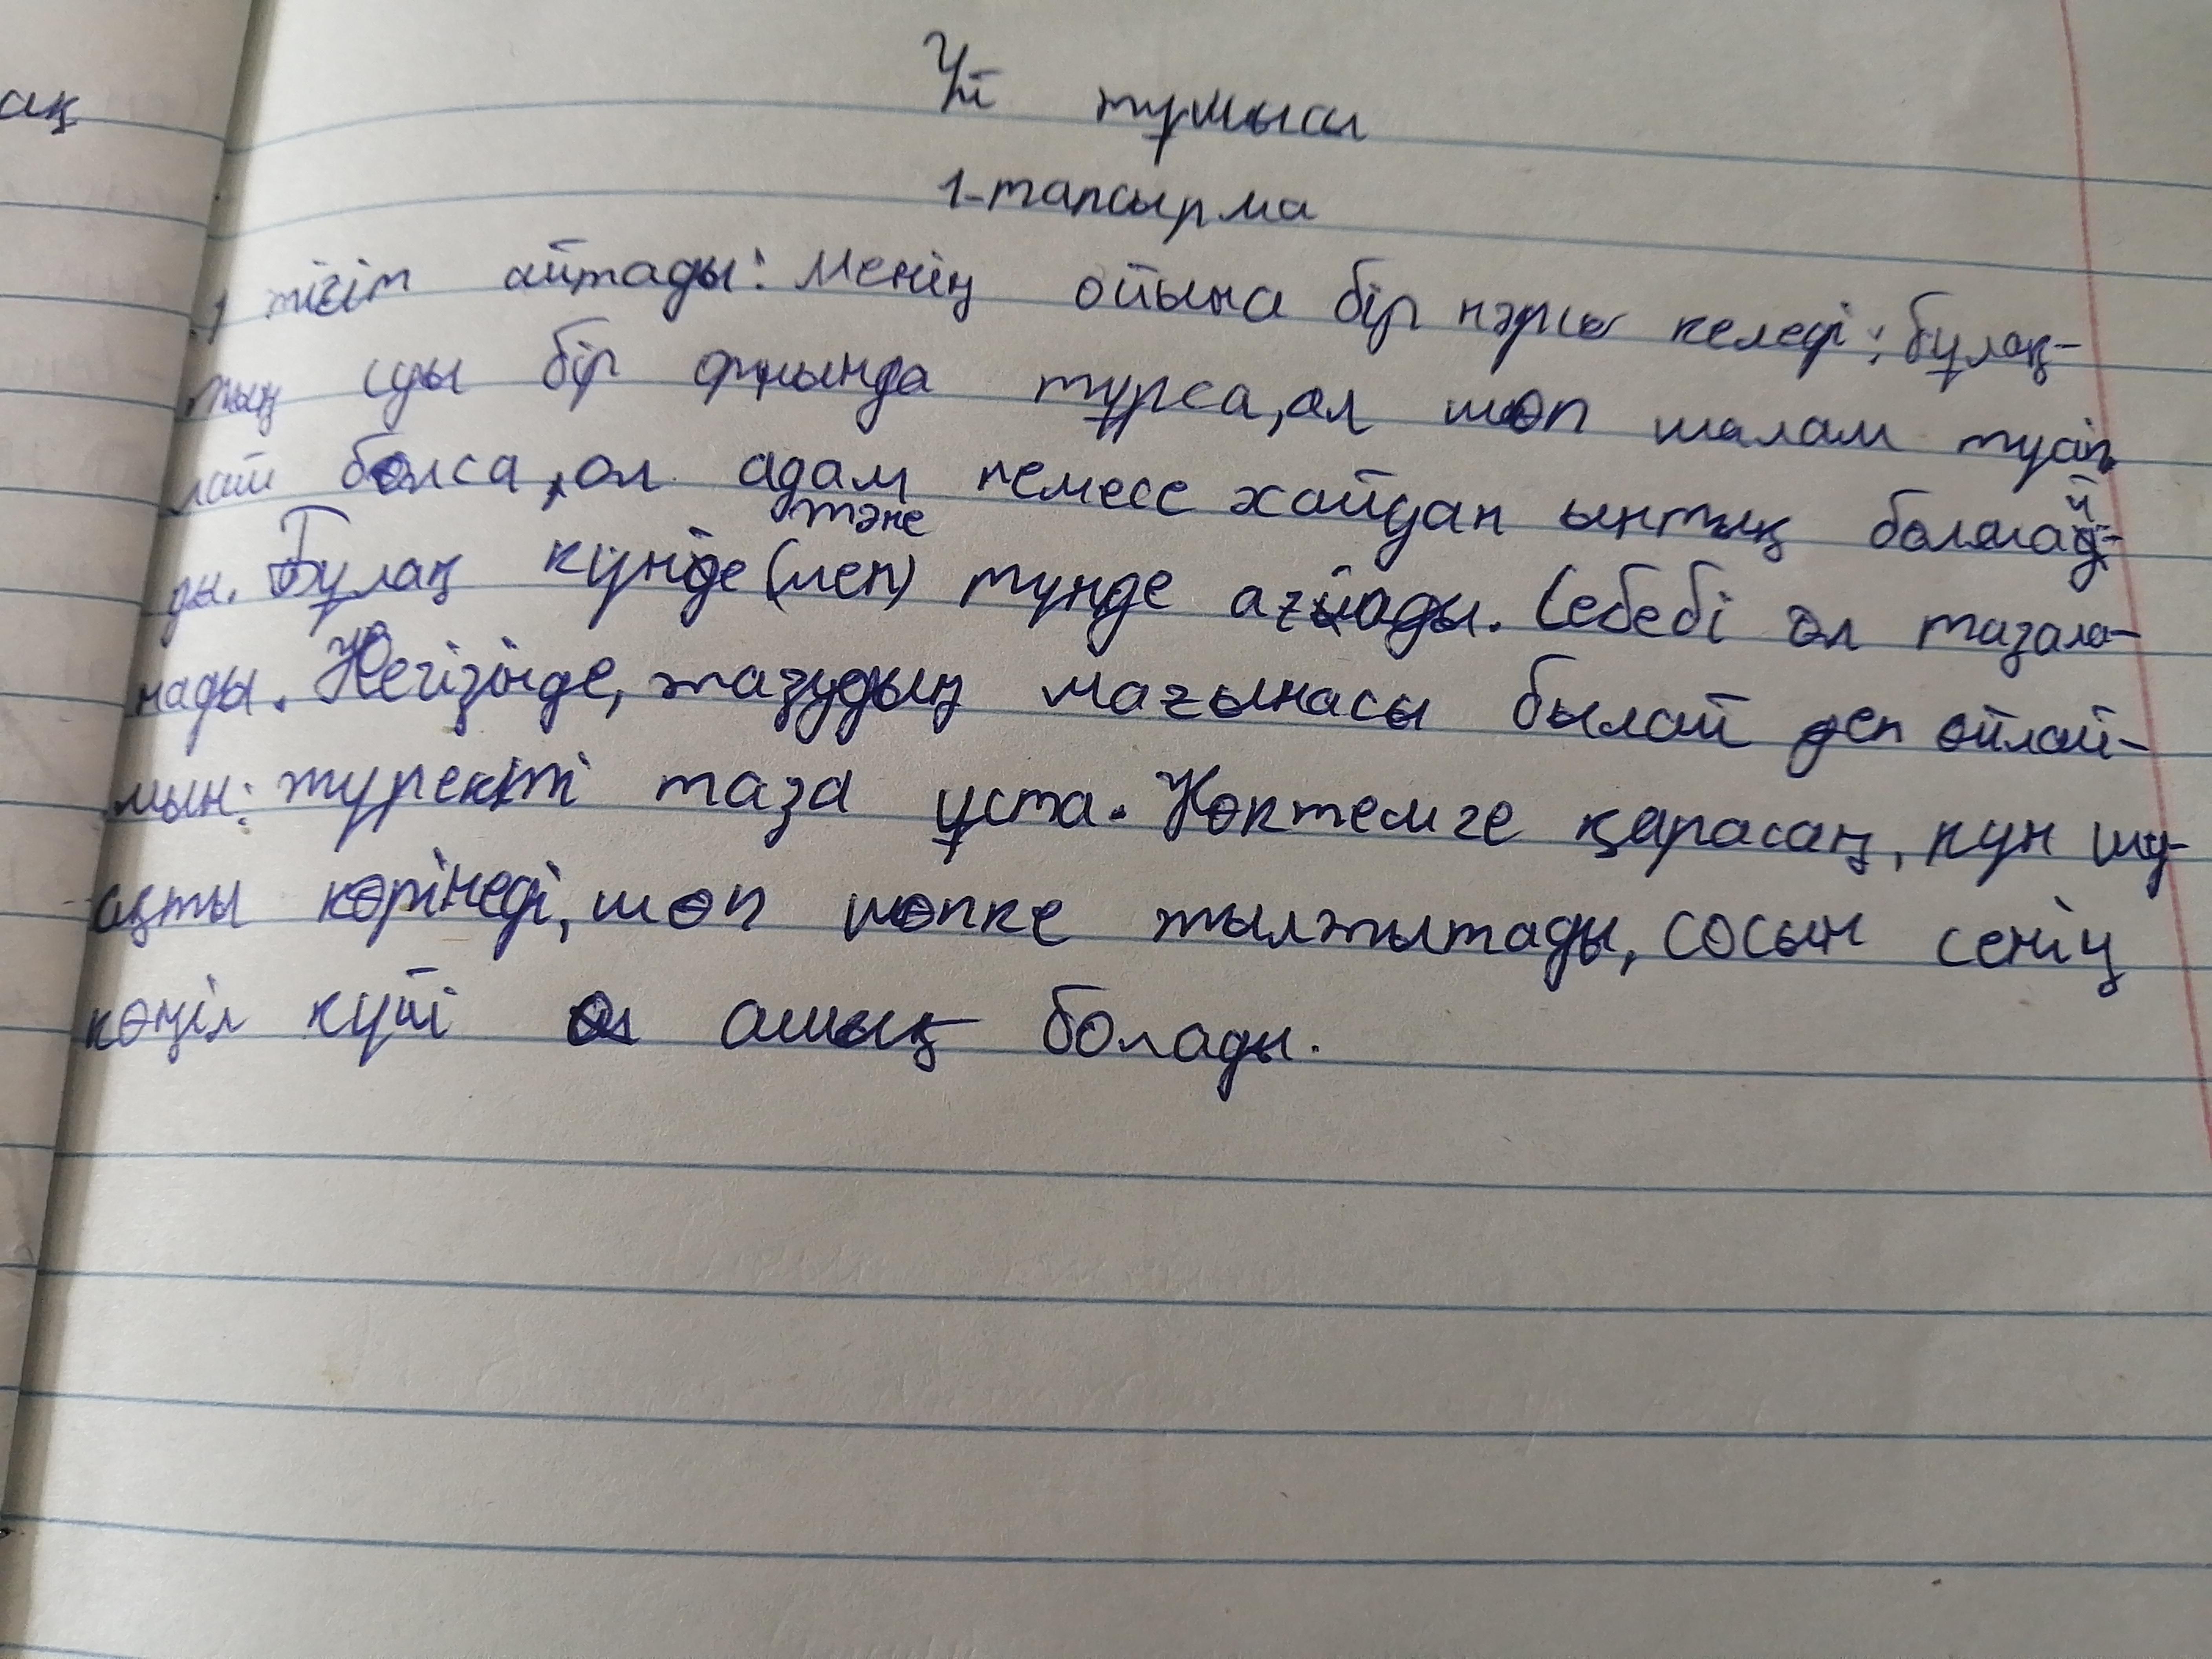 ақ
Үй жұмысы
1-тапсырма
1 жігіт айтады: Менің ойына бір нәрсе келеді: бұлақ-
тың суы бір орнында тұрса, ол шөп шалам
лай болса, ол адам немесе хайдан ынтық болмай-
ды. Бұлақ күнде (мен) және түнде ағады. Себебі ол тазала-
нады. Негізінде, жазудың мағынасы былай деп ойлай-
мын: жүректі таза ұста. Көктемге қарасаң, күн шу-
ақты көрінеді, шөп шөпке жылжытады, сосын сенің
көңіл күйі ашық болады.